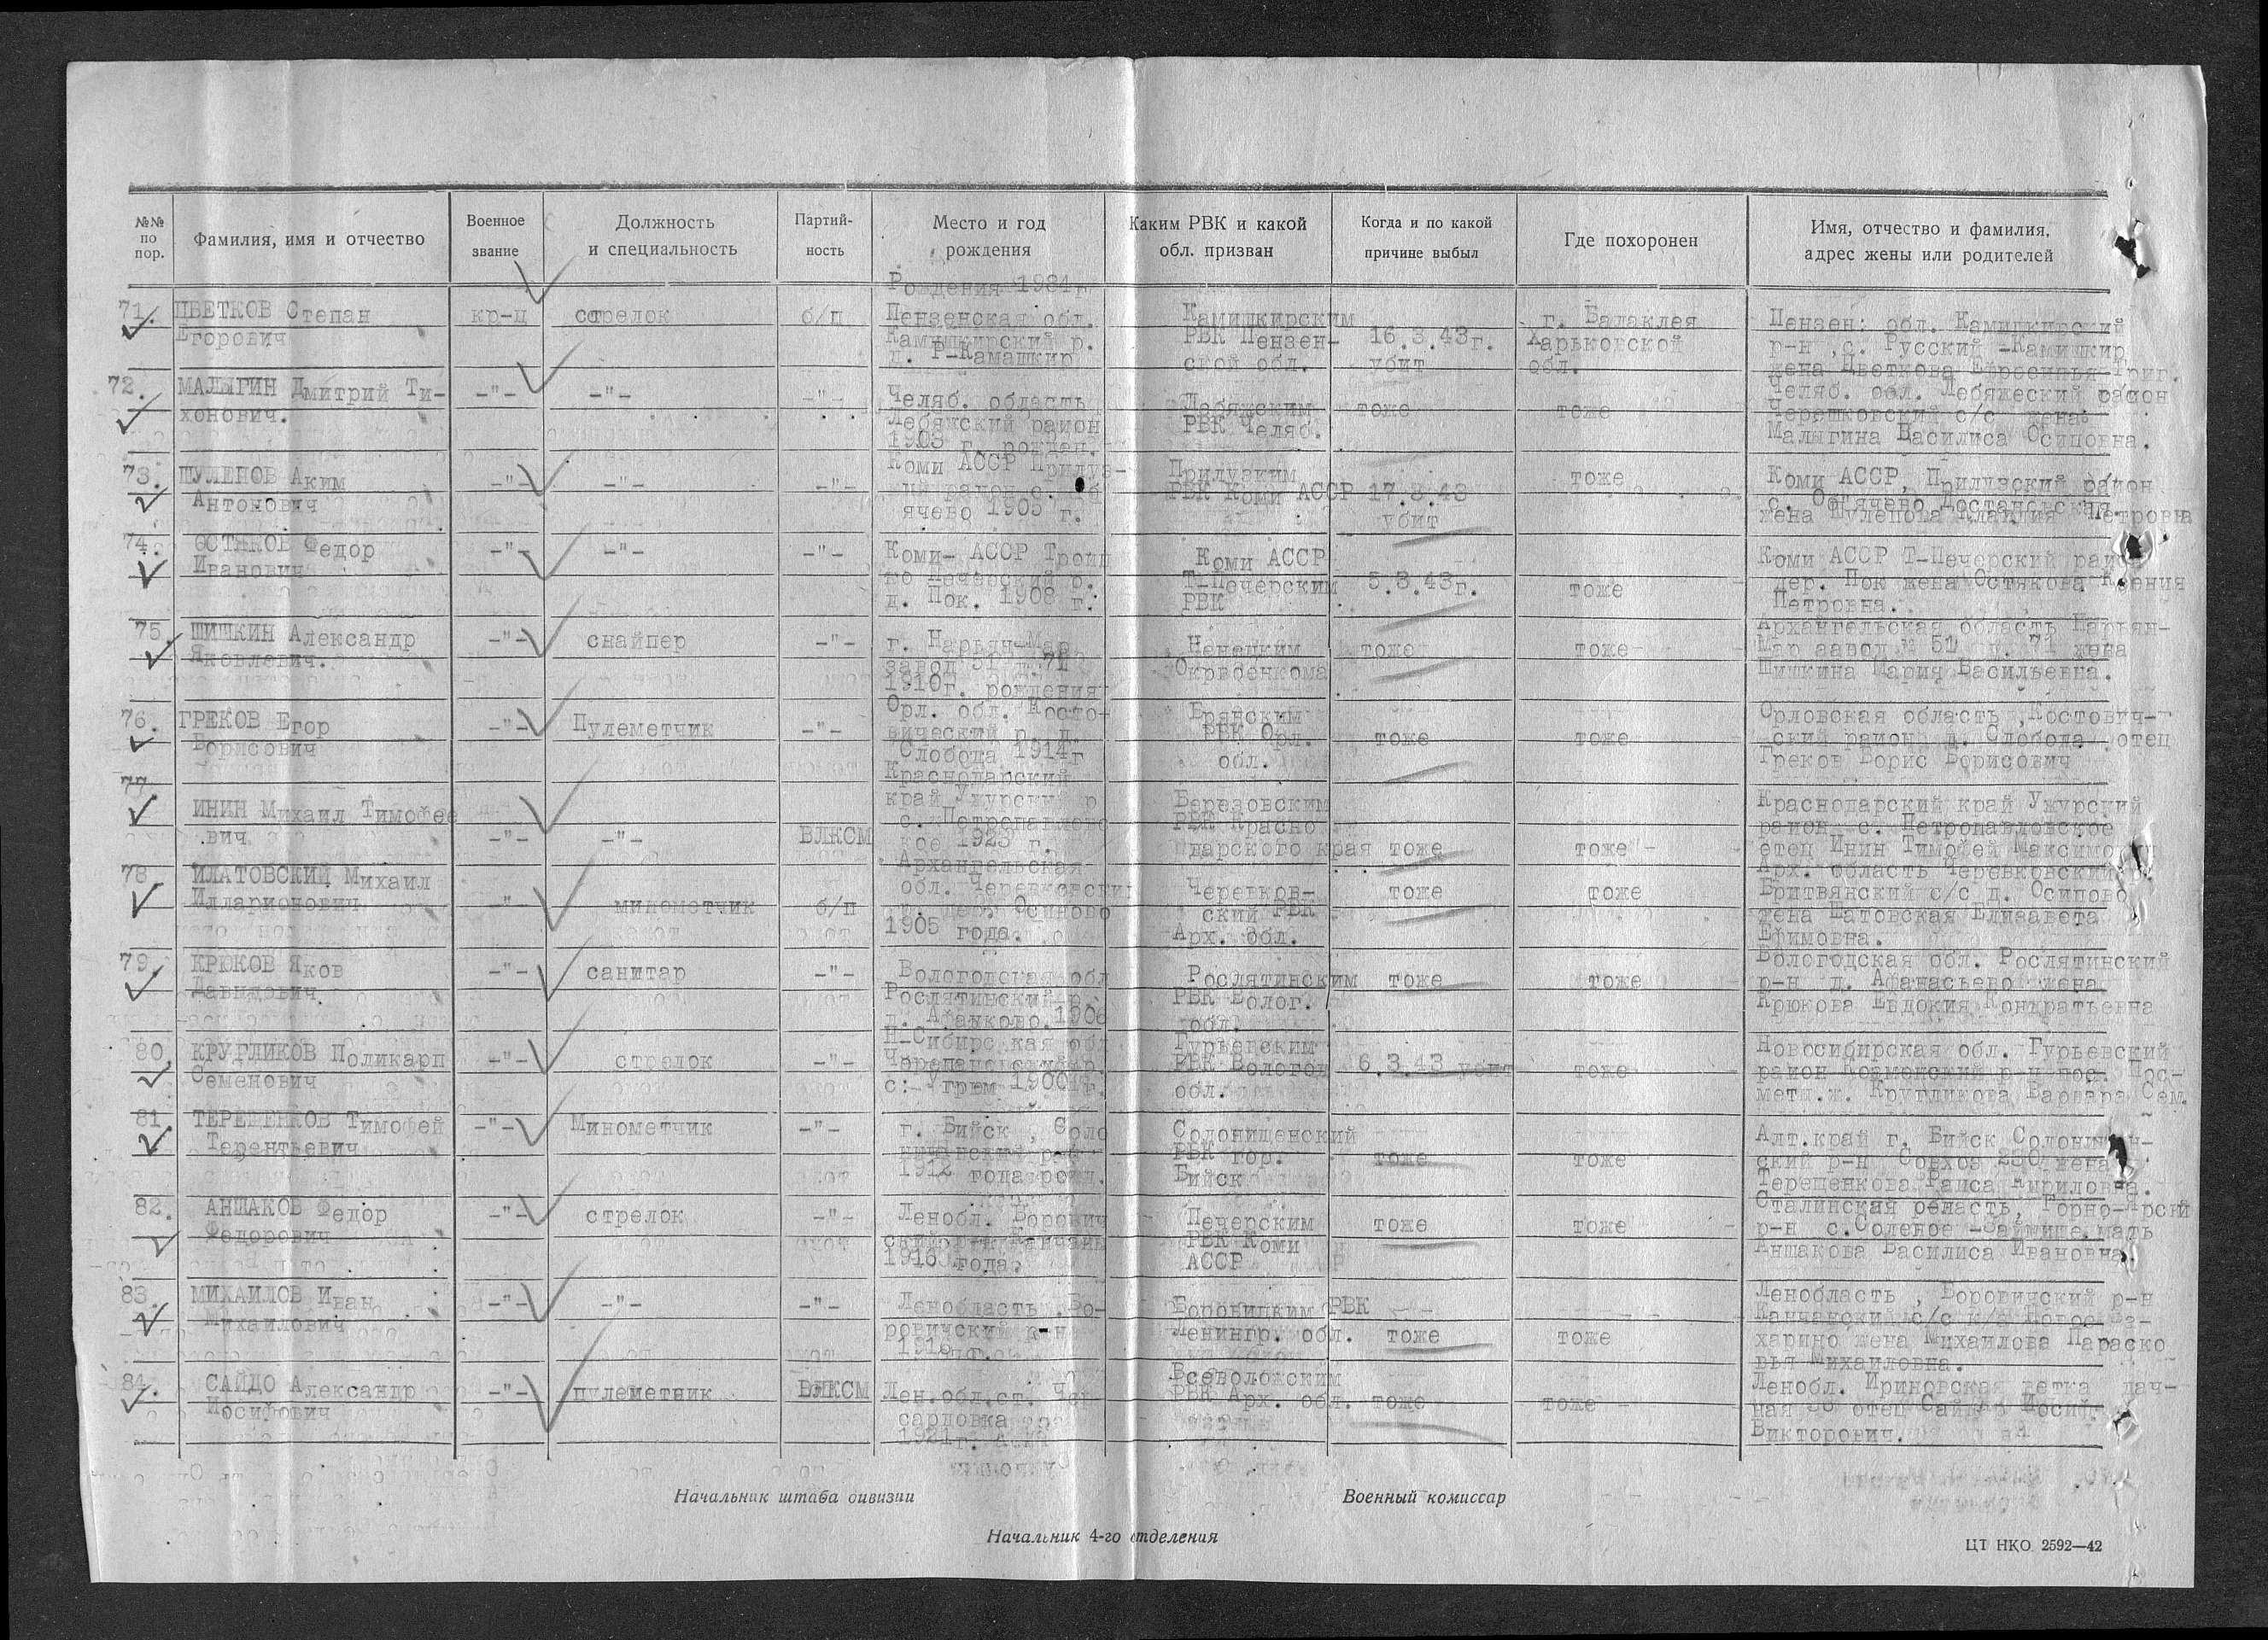 №№ по пор.
Фамилия, имя и отчество
Военное звание
Должность и специальность
Партий-ность
Место и год рождения
Каким РВК и какой обл. призван
Когда и по какой причине выбыл
Где похоронен
Имя, отчество и фамилия, адрес жены или родителей
71. ЦВЕТКОВ Степан
Егорович
кр-ц
стрелок
б/п
Пензенская обл.
Камешкирский р.
д. Р-Камашкир
Камишкирским
РВК Пензен-
ской обл.
16.3.43г.
убит
г. Балаклея
Харьковской
обл.
Пензен: обл. Камишкирский
р-н ,с. Русский -Камишкир
жена Цветкова
72. МАЛЫГИН Дмитрий Ти-
хонович.
-"-
-"-
-"-
Челяб. область
Лебяжский район
1903 г. рожден.
Лебяжским
РВК Челяб.
тоже
тоже
Челяб. обл. Лебяжеский район
с/с жена
Малыгина Василиса Осиповна.
73. ШУЛЕПОВ Аким
Антонович
-"-
-"-
-"-
Коми АССР Прилуз-
ячево 1905 г.
Прилузким
РВК Коми АССР
17.3.43
убит
тоже
Коми АССР, Прилузский район
жена Шулепова Клавдия Петровна
74. ОСТЯКОВ Федор
Иванович
-"-
-"-
-"-
Коми- АССР Троиц
ко Печерский р.
д. Пок. 1908 г.
Коми АССР
Т-Печерским
РВК
5.3.43г.
тоже
Коми АССР Т-Печерский район
дер. Пок жена Остякова Ксения
Петровна.
75. ШИШКИН Александр
Яковлевич.
-"-
снайпер
-"-
г. Нарьян-Мар
завод 51 д.71
1910г. рождения
Ненецким
Окрвоенкома
тоже
тоже
Архангельская область Нарьян-
Мар завод № 51 д. 71 жена
Шишкина Мария Васильевна.
76. ГРЕКОВ Егор
Борисович
-"-
Пулеметчик
-"-
Орл. обл.
Слобода 1914г
Брянским
РВК Орл.
обл.
тоже
тоже
Орловская область ,Костович-
ский район д. Слобода отец
Греков Борис Борисович
77. ИНИН Михаил Тимофее
вич
-"-
-"-
ВЛКСМ
Краснодарский
край Ужурский р
с. Петропавловс
кое 1923 г.
Березовским
РВК Красно
дарского края
тоже
тоже
Краснодарский край Ужурский
район с. Петропавловское
отец Инин Тимофей Максимо
78. Михаил
Илларионович
-"-
минометчик
б/п
Архангельская
обл. Черевковский
1905 года.
Черевков-
ский РВК
Арх. обл.
тоже
тоже
Арх. область Черевковский
Бритвянский с/с д. Осипово
жена Елизавета
Ефимовна.
79. КРЮКОВ Яков
Давидович.
-"-
санитар
-"-
Вологодская обл
Рослятинский р.
1906
Рослятинским
РВК Волог.
обл.
тоже
тоже
Вологодская обл. Рослятинский
р-н д. Афанасьево жена
Крюкова Евдокия Кондратьевна
80. КРУГЛИКОВ Поликарп
Семенович
-"-
стрелок
-"-
Н-Сибирская обл
1900 г.
Гурьевским
РВК Вологод
обл.
6.3.43 убит
тоже
Новосибирская обл. Гурьевский
район
ж. Кругликова Варвара Сем.
81. ТЕРЕЩЕНКОВ Тимофей
Терентьевич
-"-
Минометчик
-"-
г. Бийск , Соло
1912 года рожд.
Солонищенский
РВК гор.
Бийск
тоже
тоже
Алт.край г. Бийск
ский р-н Совхоз 250 жена
Терещенкова Раиса Кириловна.
82. АНШАКОВ Федор
Федорович
-"-
стрелок
-"-
Ленобл. Борович
1916 года.
Печерским
РВК Коми
АССР
тоже
тоже
Сталинская область,
р-н с.Соленое -Займище мать
Аншакова Василиса Ивановна.
83. МИХАИЛОВ Иван
Михаилович
-"-
-"-
-"-
Ленобласть .Бо-
ровичский р-н
Боровицким РВК
Ленингр. обл.
тоже
тоже
Ленобласть , Боровичский р-н
жена Михаилова Параско
вья Михаиловна.
84. САЙДО Александр
Иосифович
-"-
пулеметчик
ВЛКСМ
Лен.обл.ст.
1921г.
Всеволожским
РВК Арх. обл.
тоже
тоже
Ленобл. Ириновская ветка дач-
ная отец Сайдо Иосиф
Викторович.
Начальник штаба дивизии
Военный комиссар
Начальник 4-го отделения
ЦТ НКО 2592—42